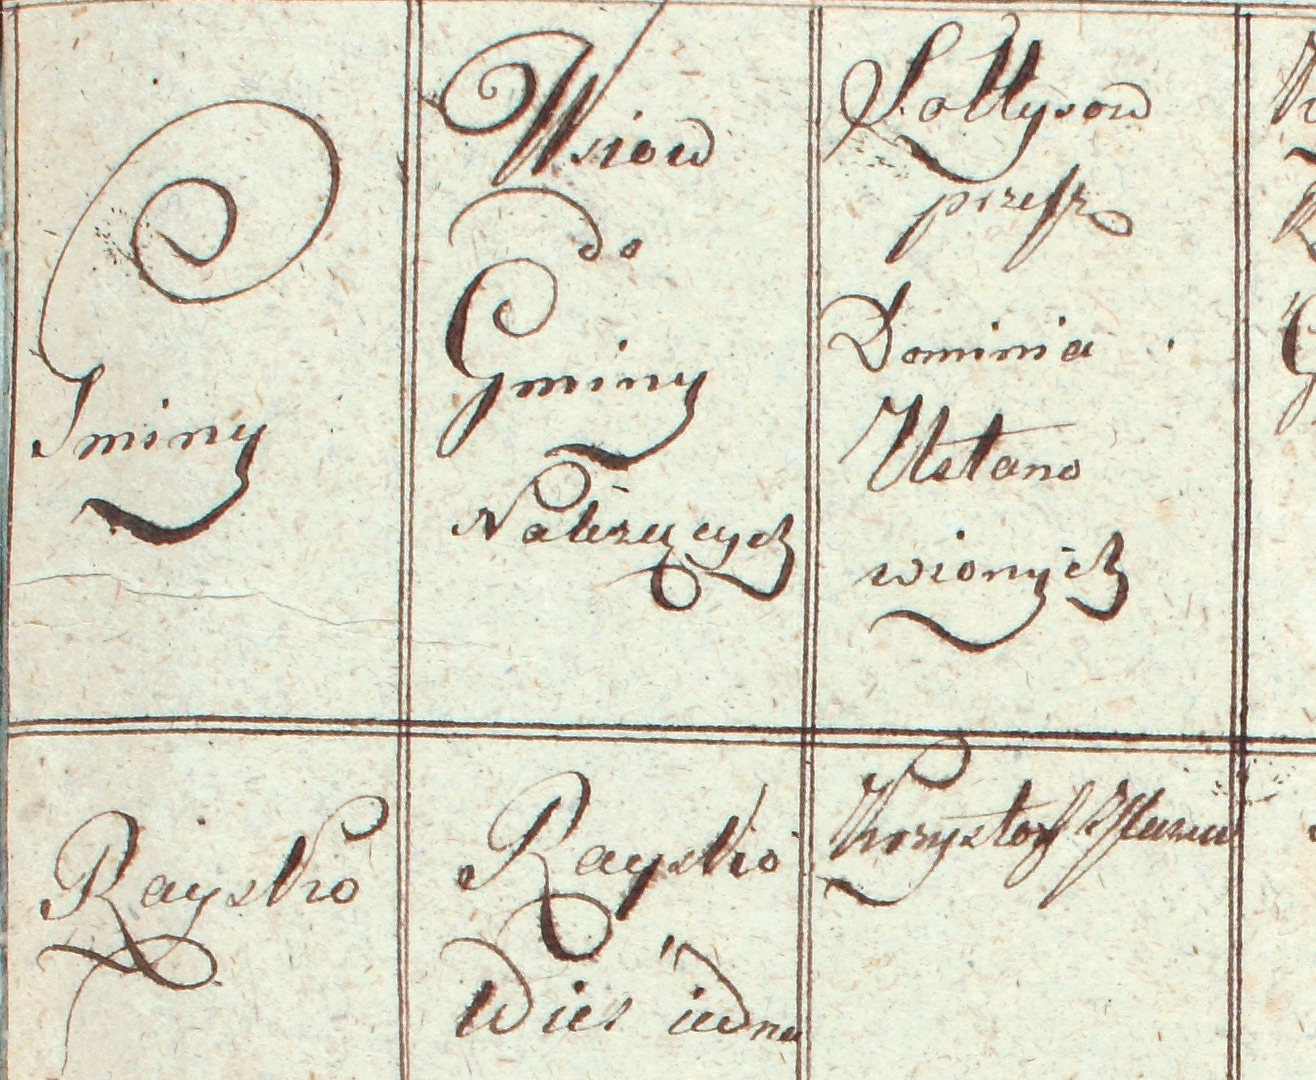 Gminy
Wsiow
do
Gminy
Należących
Sołtysow
przesz
Dominia
Ustano
wionych
Raysko
Raysko
Wies iedna
Krzysztof